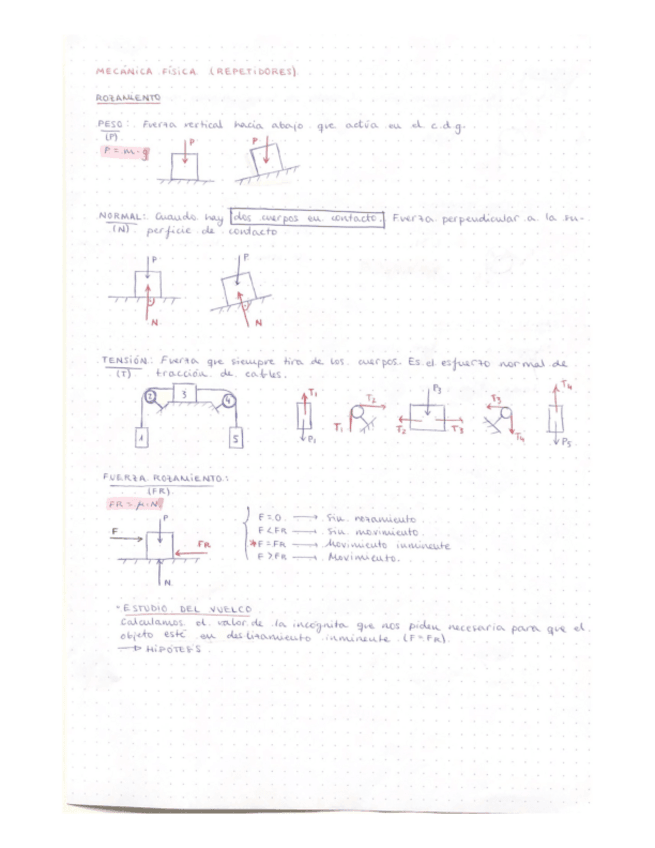 MECÁNICA FÍSICA (REPETIDORES)
ROZAMIENTO
PESO: Fuerza vertical hacia abajo que actúa en el c.d.g.
(P)
P = m · g
P P
NORMAL: Cuando hay dos cuerpos en contacto. Fuerza perpendicular a la su-
(N) perficie de contacto
P P
N N
TENSIÓN: Fuerza que siempre tira de los cuerpos. Es el esfuerzo normal de
(T) tracción de cables.
2 3 4 T1 T2 P3 T3 T4
T1 T2 T3 T4
1 5 P1 P5
FUERZA ROZAMIENTO:
(FR)
FR = μ·N
P
F FR
N
F=0 → Sin rozamiento
F<FR → Sin movimiento
*F=FR → Movimiento inminente
F>FR → Movimiento.
· ESTUDIO DEL VUELCO
Calculamos el valor de la incógnita que nos piden necesaria para que el
objeto esté en deslizamiento inminente (F=FR).
→ HIPÓTESIS